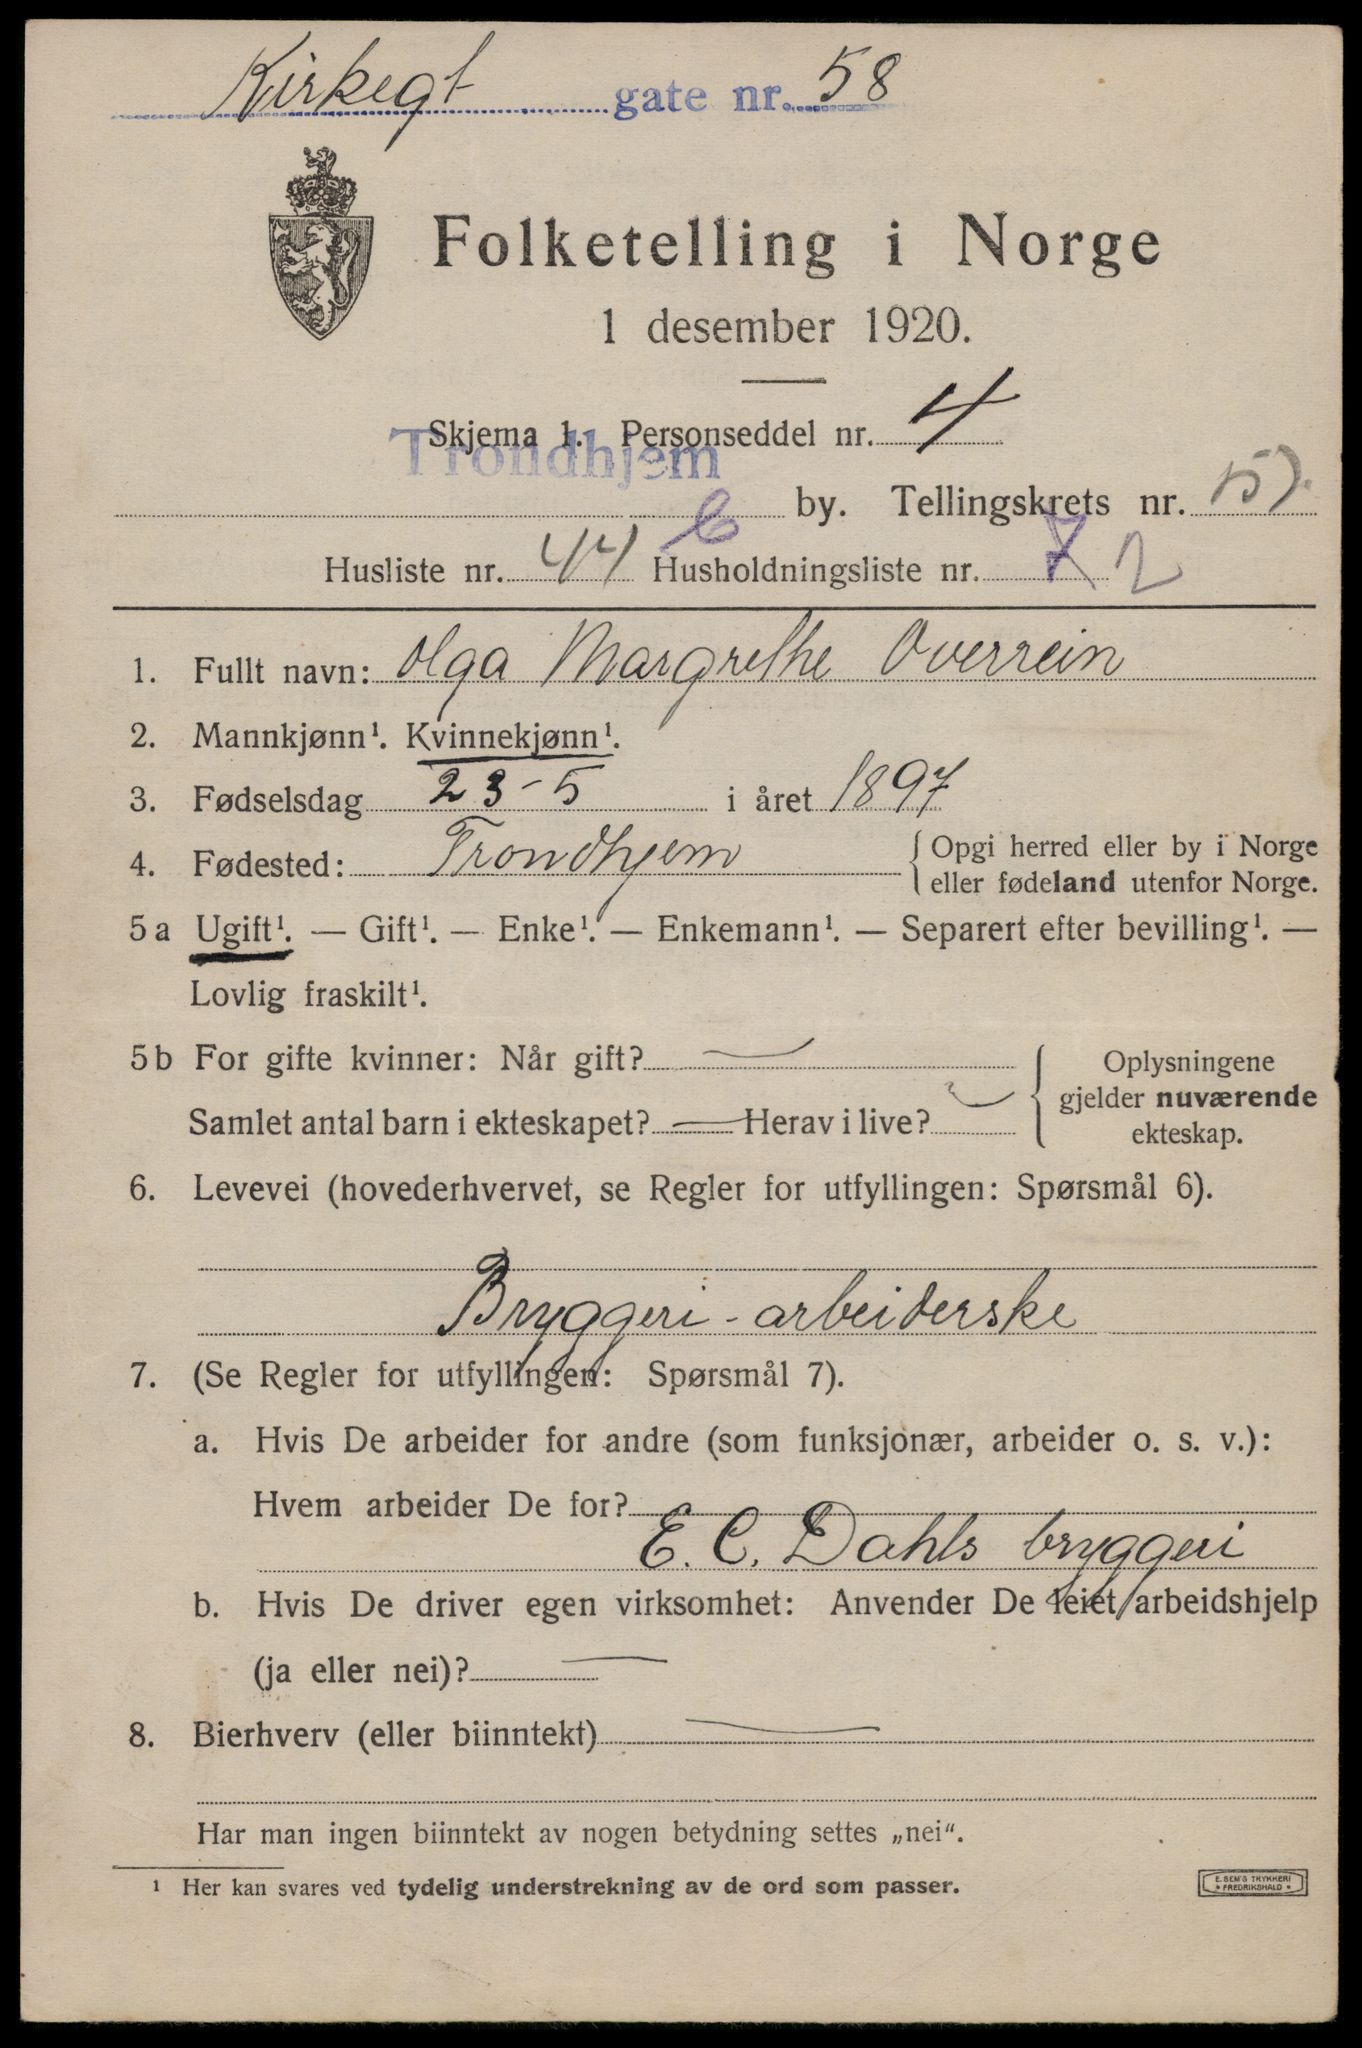 Kirkegt gate nr. 58
Folketelling i Norge
1 desember 1920.
Skjema 1. Personseddel nr. 4
Trondhjem by. Tellingskrets nr. 57.
Husliste nr. 44 Husholdningsliste nr. 2
1. Fullt navn: Olga Margrethe Overrein
2. Mannkjønn¹. Kvinnekjønn¹.
3. Fødselsdag 23-5 i året 1897
4. Fødested: Trondhjem { Opgi herred eller by i Norge
eller fødeland utenfor Norge.
5a Ugift¹. — Gift¹. — Enke¹. — Enkemann¹. — Separert efter bevilling¹. —
Lovlig fraskilt¹.
5b For gifte kvinner: Når gift? —
Samlet antal barn i ekteskapet? — Herav i live?
{ Oplysningene
gjelder nuværende
ekteskap.
6. Levevei (hovederhvervet, se Regler for utfyllingen: Spørsmål 6).
Bryggeri-arbeiderske
7. (Se Regler for utfyllingen: Spørsmål 7).
a. Hvis De arbeider for andre (som funksjonær, arbeider o. s. v.):
Hvem arbeider De for?
E. C. Dahls bryggeri
b. Hvis De driver egen virksomhet: Anvender De leiet arbeidshjelp
(ja eller nei)? —
8. Bierhverv (eller biinntekt) —
Har man ingen biinntekt av nogen betydning settes „nei“.
¹ Her kan svares ved tydelig understrekning av de ord som passer.
E. SEM'S TRYKKERI
* FREDRIKSHALD *